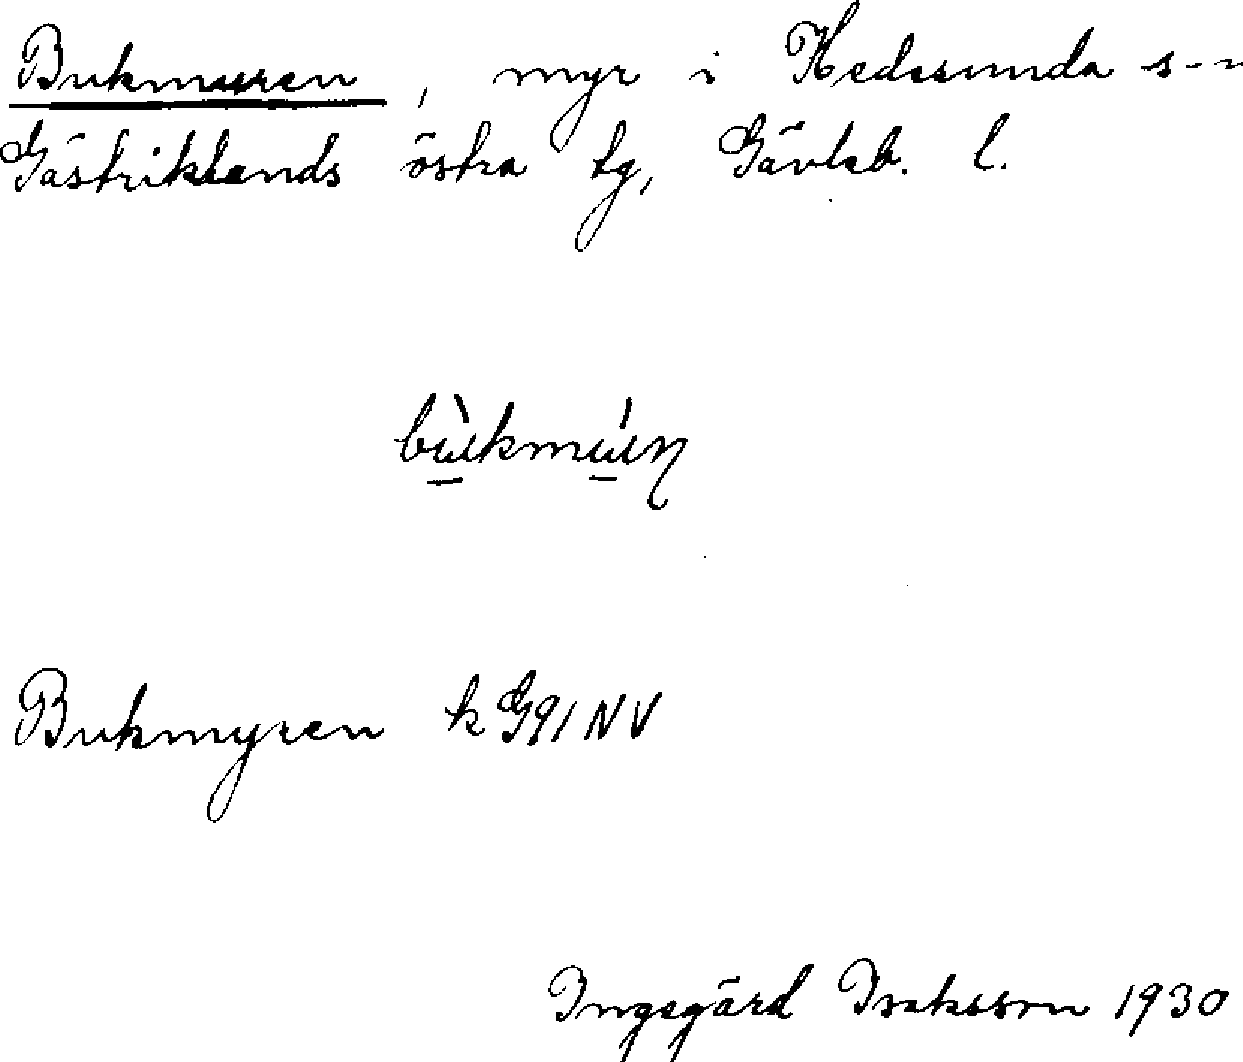 Bukmuren, myr i Hedesunda s-n
Gästriklands östra tg, Gävleb. l.
bù̲kmú̲ɩn̥
Bukmyren k G91NV
Ingegärd Isaksson 1930